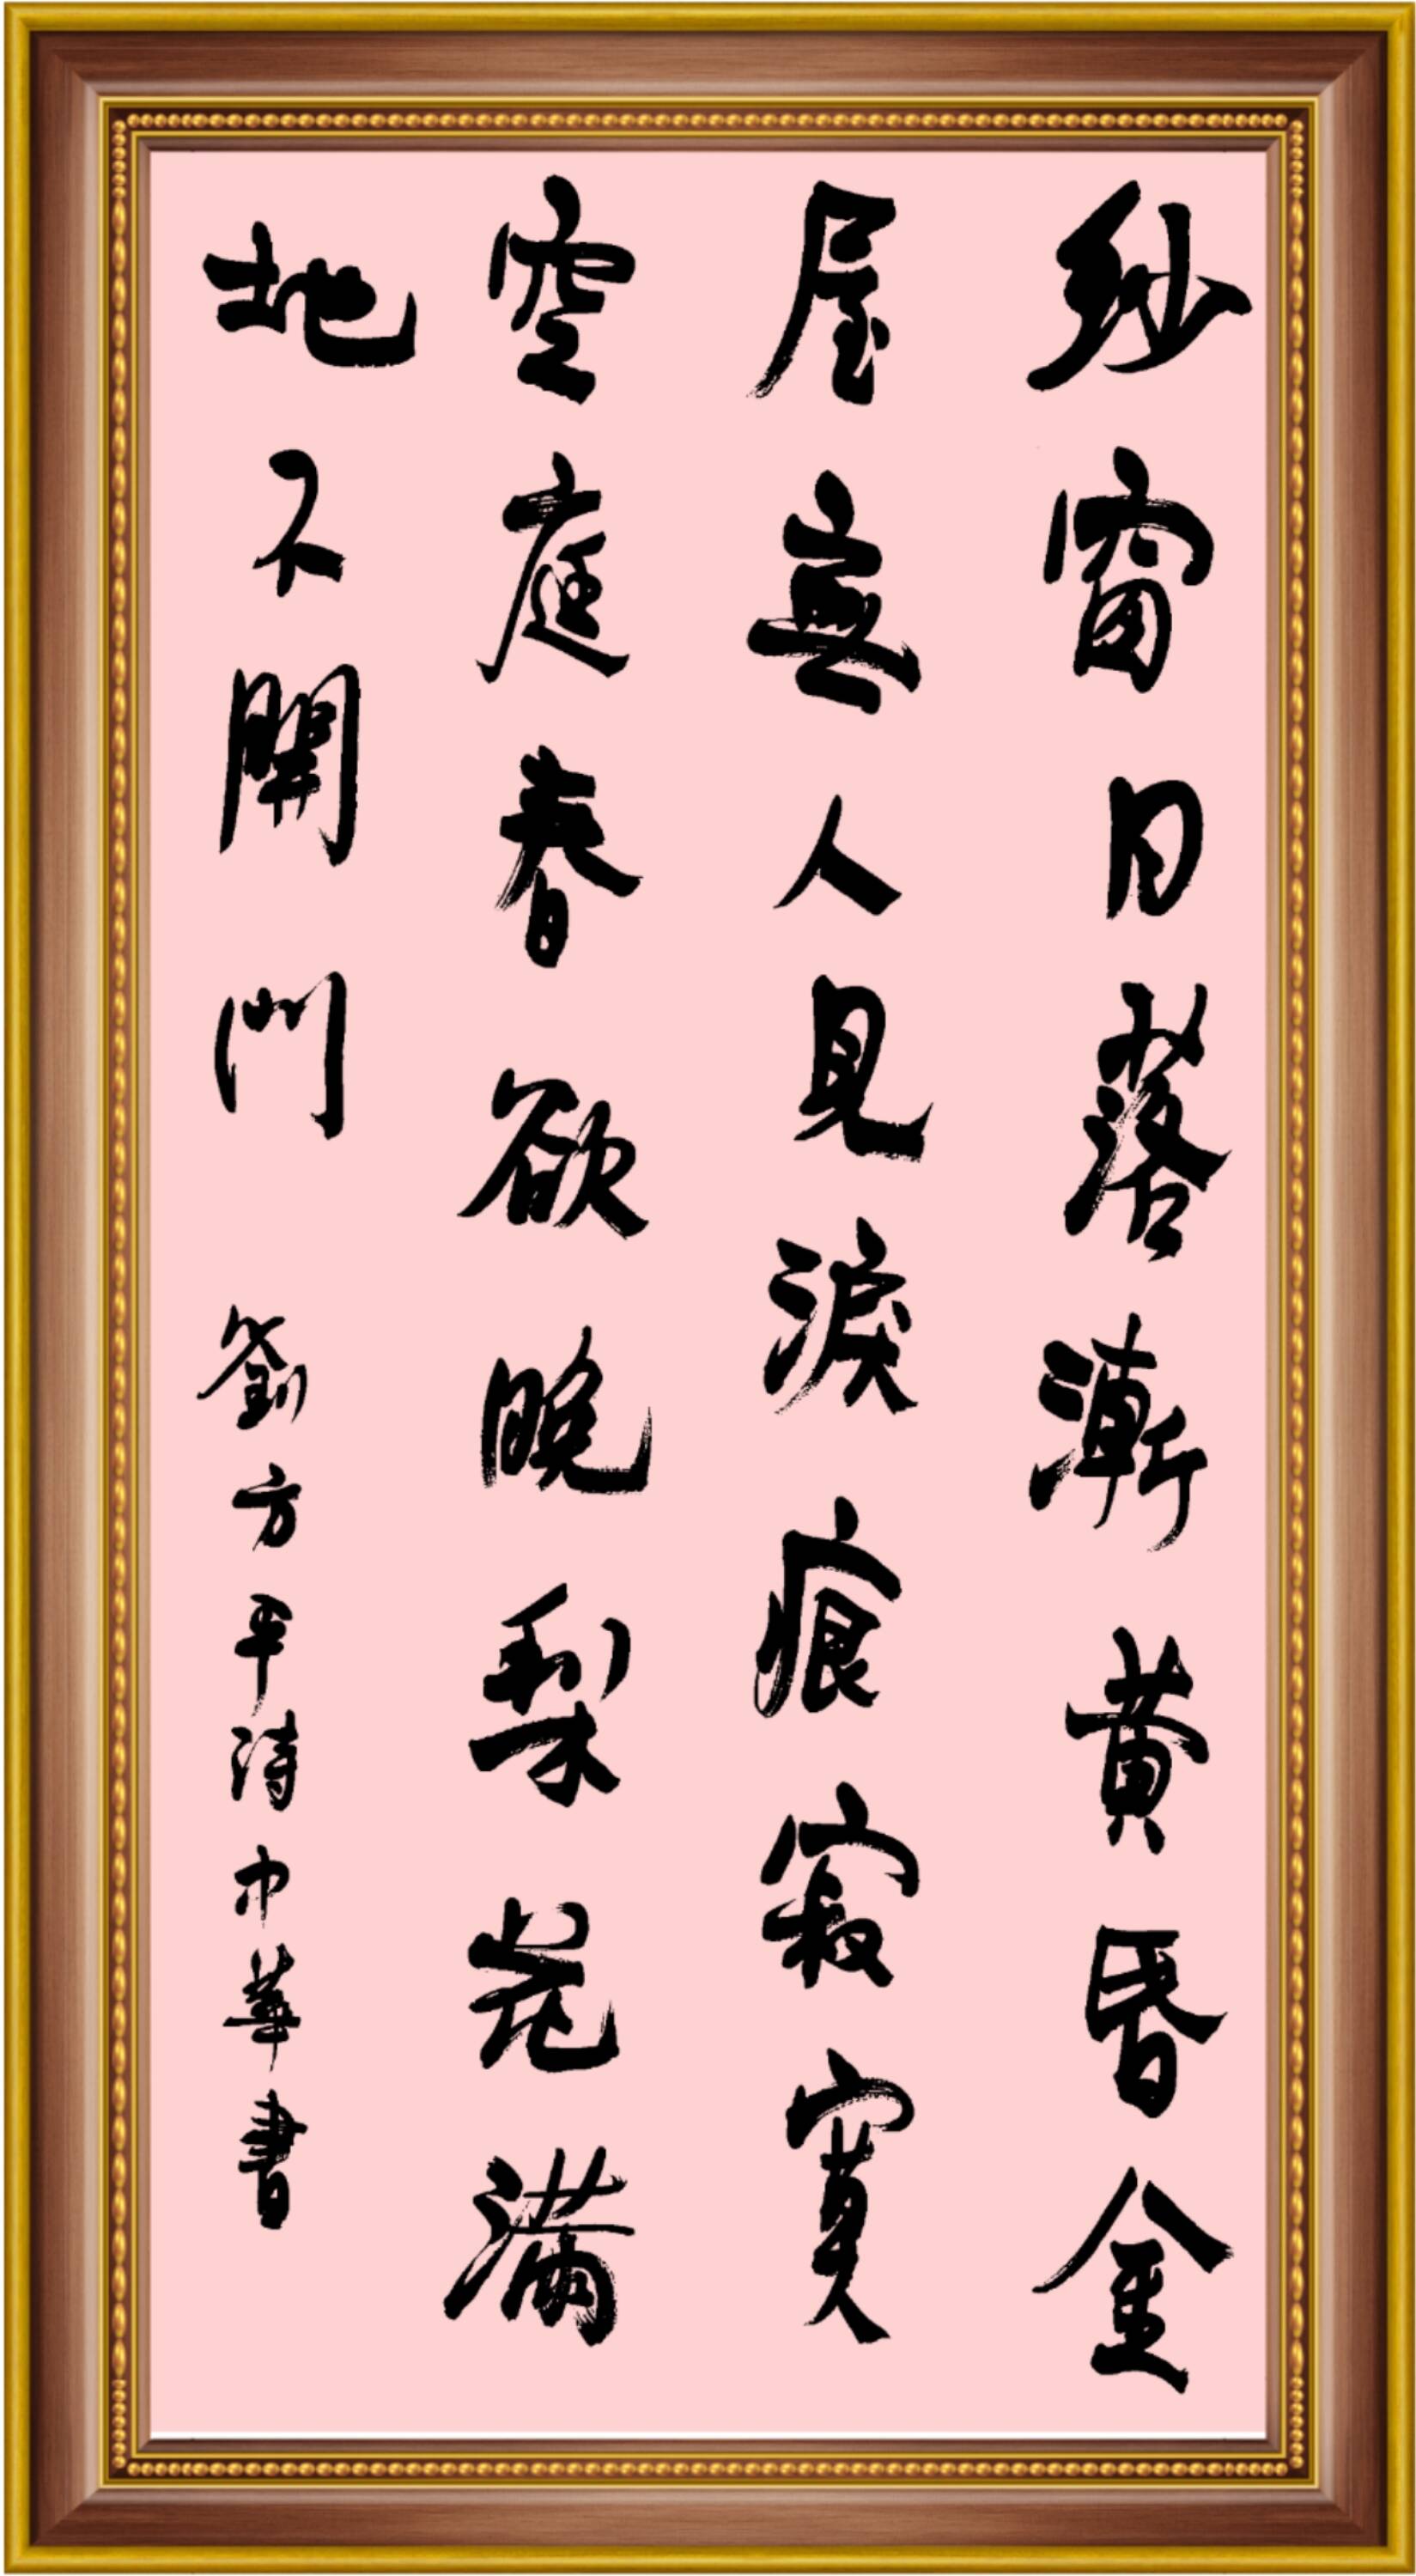 紗窗日落漸黃昏金
屋無人見淚痕寂寞
空庭春欲晚梨花滿
地不開門 劉方平詩 華書